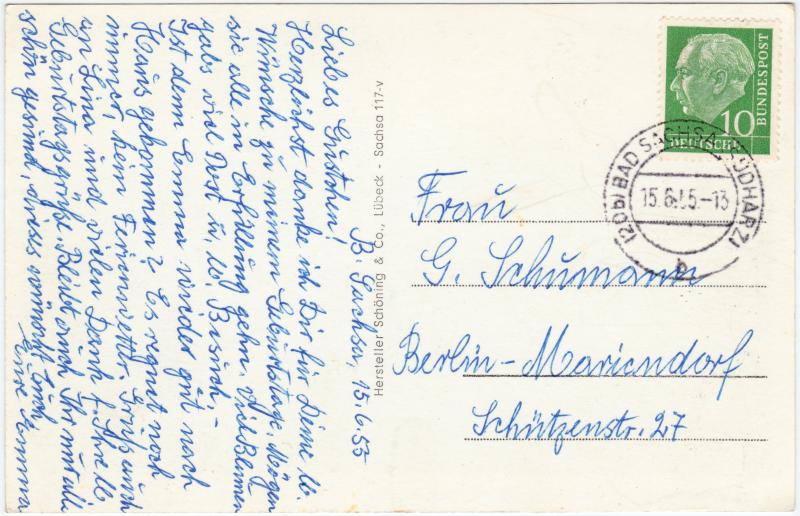 B. Sachsa, 15.6.55
Liebes Gustchen!
Herzlichst danke ich Dir für Deine lb.
Wünsche zu meinem Geburtstage. Mögen
sie alle in Erfüllung gehn. Viel Blumen
gabs viel Post u. lb. Besuch. –
Ist denn Emma wieder gut nach
Haus gekommen? Es regnet noch
immer, kein Ferienwetter. Grüß auch
un Lina und vielen Dank f. Ihre lb.
Geburtstagsgrüße. Bleibt auch Ihr nur alle
schön gesund, dieses wünscht Euch
Eure Emma
Hersteller Schöning & Co., Lübeck - Sachsa 117-v
10
DEUTSCHE
BUNDESPOST
(20b) BAD SACHSA (SÜDHARZ)
15.6.55-13
b
Frau
G. Schumann
Berlin-Mariendorf
Schützenstr. 27